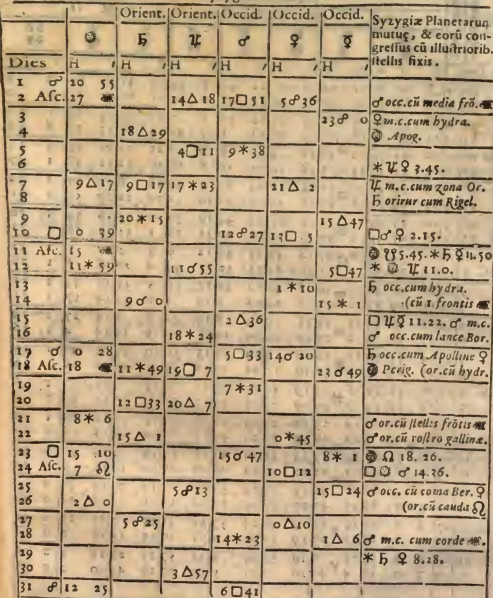 Orient. Orient. Occid. Occid. Occid. Syzygiæ Planetarum
☉ ♄ ♃ ♂ ♀ ☿ mutuę, & eorū con-
gressus cū illustriorib.
Dies H H H H H H stellis fixis.
1 ☍ 20 55
2 Asc. 27 14 △ 18 17 □ 51 5 ☍ 36 ♂ occ. cū media frō.
3 23 ☍ 0 ♀ m.c. cum hydra.
4 18 △ 29 Apog.
5 4 □ 11 9 ✶ 38
6 ✶ ♃ ♀ 3.45.
7 9 △ 17 9 □ 17 17 ✶ 23 21 △ 2 ♃ m.c. cum zona Or.
8 ♄ oritur cum Rigel.
9 20 ✶ 15 15 △ 47
10 □ 0 39 12 ☍ 27 13 □ 5 □ ♂ ♀ 2.15.
11 Asc. 15 ☋ 5.45. ✶ ♄ ☿ 11.50
12 11 ✶ 59 11 ☍ 55 5 □ 47 ✶ ☉ ♃ 11.0.
13 1 ✶ 10 ♄ occ. cum hydra.
14 9 ☌ 0 15 ✶ 1 (cū 1 frontis
15 2 △ 36 □ ♃ ☿ 11.22. ♂ m.c.
16 18 ✶ 24 ♂ occ. cum lance Bor.
17 ☌ 0 28 5 □ 33 14 ☌ 20 ♄ occ. cum Apolline ♀
18 Asc. 18 11 ✶ 49 19 □ 7 23 ☌ 49 Perig. (or. cū hydr.
19 7 ✶ 31
20 12 □ 33 20 △ 7
21 8 ✶ 6 ♂ or. cū stellis frōtis
22 15 △ 1 0 ✶ 45 ♂ or. cū rostro gallinæ.
23 □ 15 10 15 ☌ 47 8 ✶ 1 ☊ 18. 26.
24 Asc. 7 ♌ 10 □ 12 □ ☉ ♂ 14.36.
25 5 ☍ 13 15 □ 24 ♂ occ. cū coma Ber. ♀
26 2 △ 0 (or. cū cauda ♌
27 5 ☍ 25 0 △ 10
28 14 ✶ 23 1 △ 6 ♂ m.c. cum corde
29 ✶ ♄ ♀ 8.28.
30 3 △ 57
31 ☍ 12 25 6 □ 41